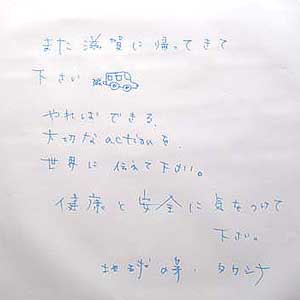 また 滋賀に 帰ってきて
下さい
やれば できる.
大切な actionを.
世界に 伝えて下さい。
健康 と 安全 に 気をつけて
下さい。
地球の弟. タケシナ